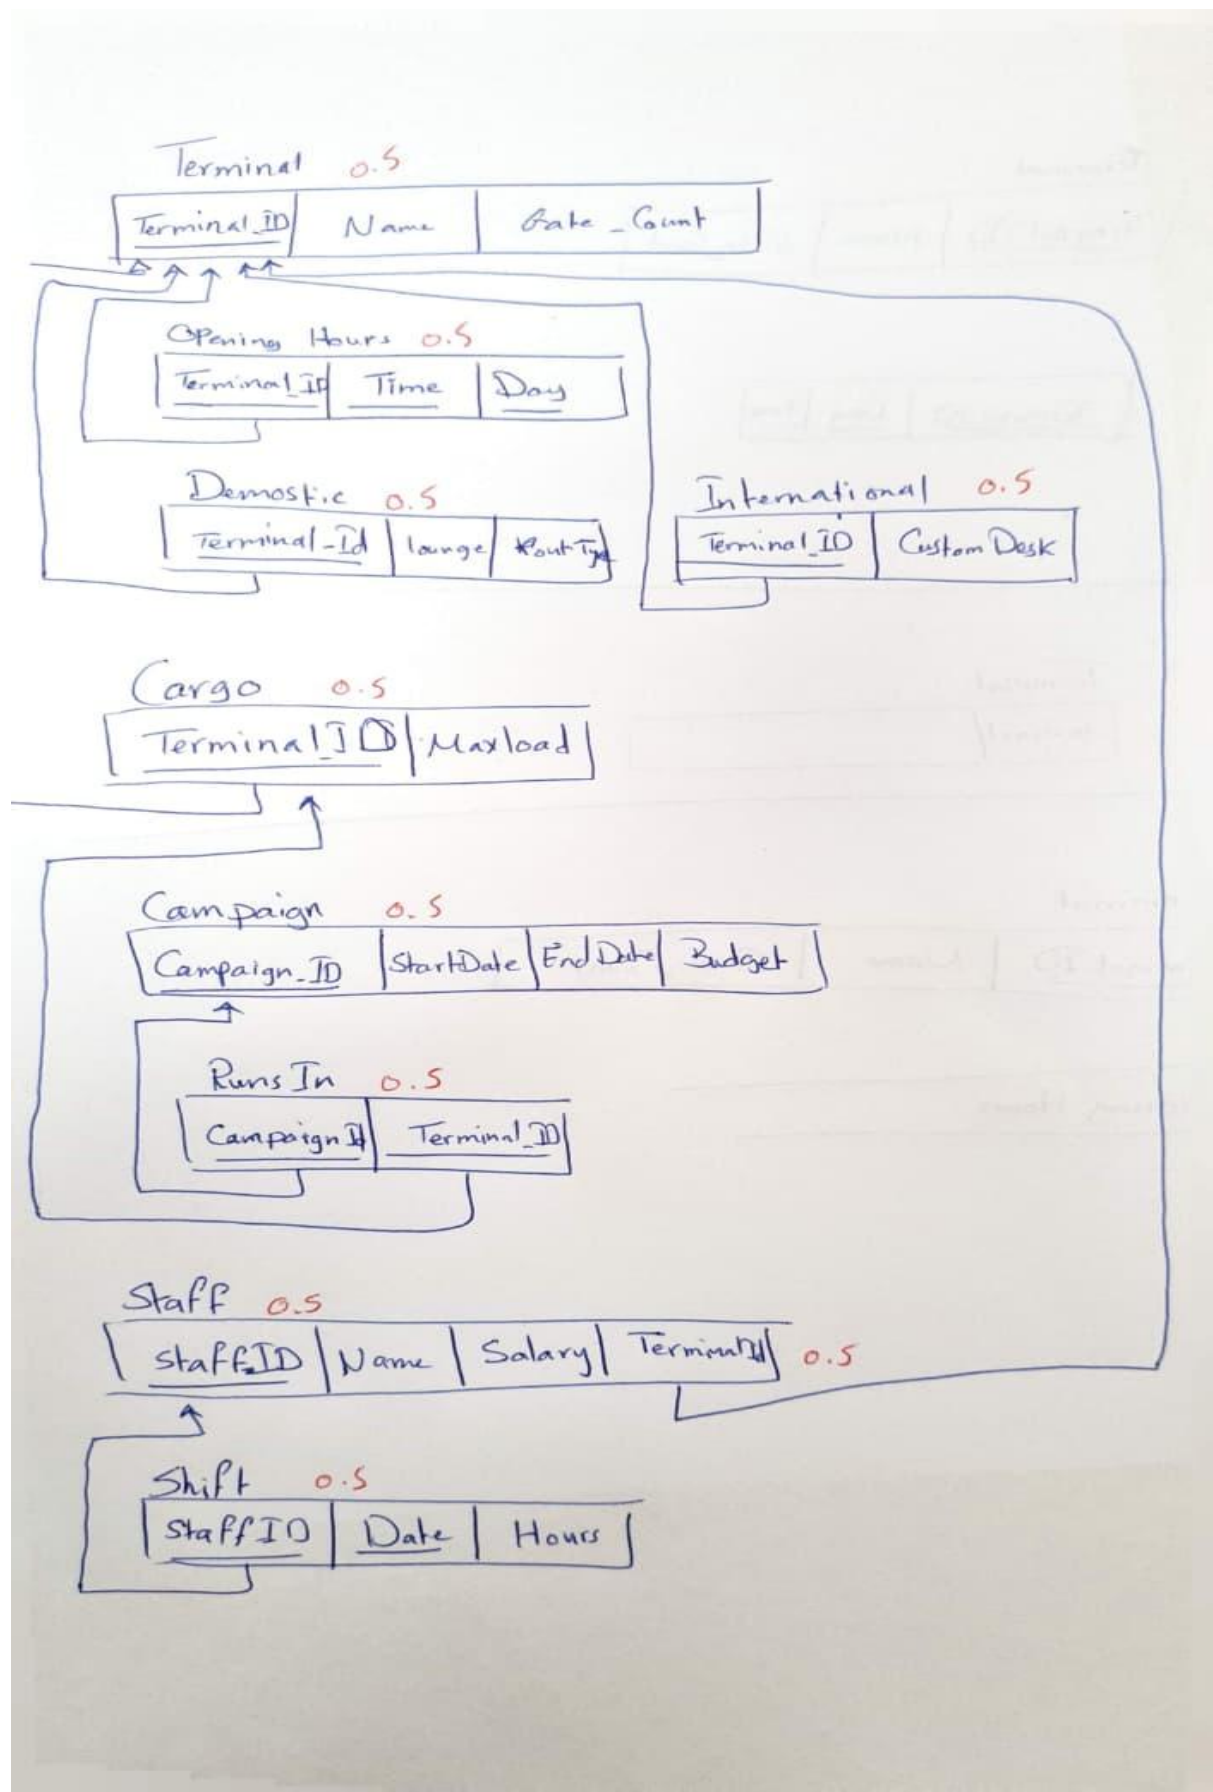 Terminal 0.5
Terminal_ID Name Gate_Count
Opening Hours 0.5
Terminal_ID Time Day
Demostic 0.5
Terminal_Id lounge
International 0.5
Terminal_ID Custom Desk
Cargo 0.5
Terminal_ID Maxload
Campaign 0.5
Campaign_ID StartDate End Date Budget
Runs In 0.5
Campaign Id Terminal_ID
Staff 0.5
Staff_ID Name Salary TerminalId 0.5
Shift 0.5
StaffID Date Hours